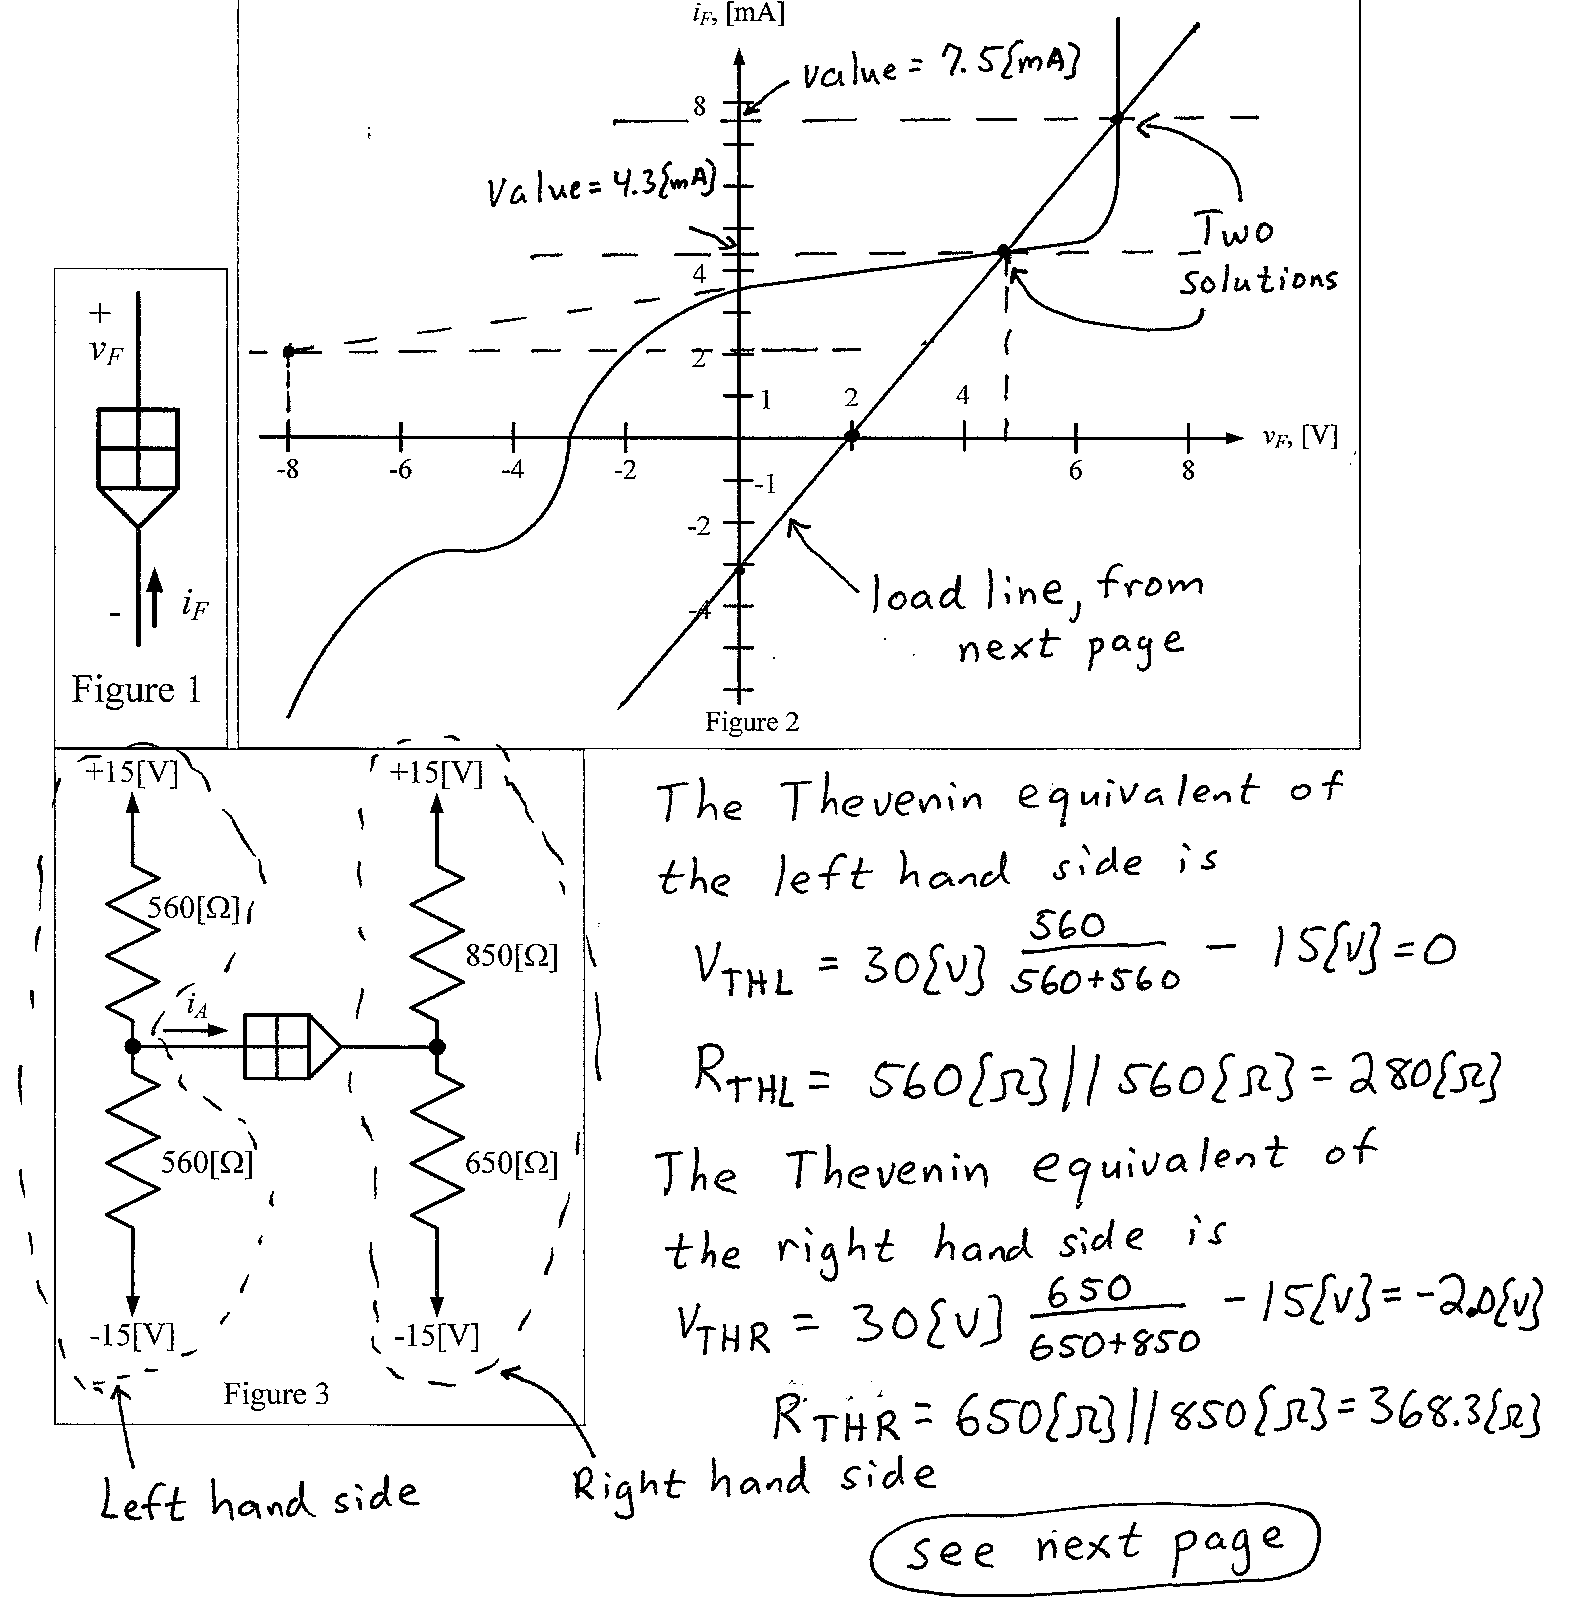 i_F, [mA]
value = 7.5{mA}
8
Value = 4.3{mA}
Two
solutions
4
2
1
2
4
-8
-6
-4
-2
6
8
v_F, [V]
-1
-2
-4
load line, from
next page
Figure 2
+
v_F
-
i_F
Figure 1
+15[V]
+15[V]
560[Ω]
850[Ω]
i_A
560[Ω]
650[Ω]
-15[V]
-15[V]
Figure 3
Left hand side
Right hand side
The Thevenin equivalent of
the left hand side is
V_THL = 30{V} 560/(560+560) - 15{V} = 0
R_THL = 560{Ω} // 560{Ω} = 280{Ω}
The Thevenin equivalent of
the right hand side is
V_THR = 30{V} 650/(650+850) - 15{V} = -2.0{V}
R_THR = 650{Ω} // 850{Ω} = 368.3{Ω}
see next page